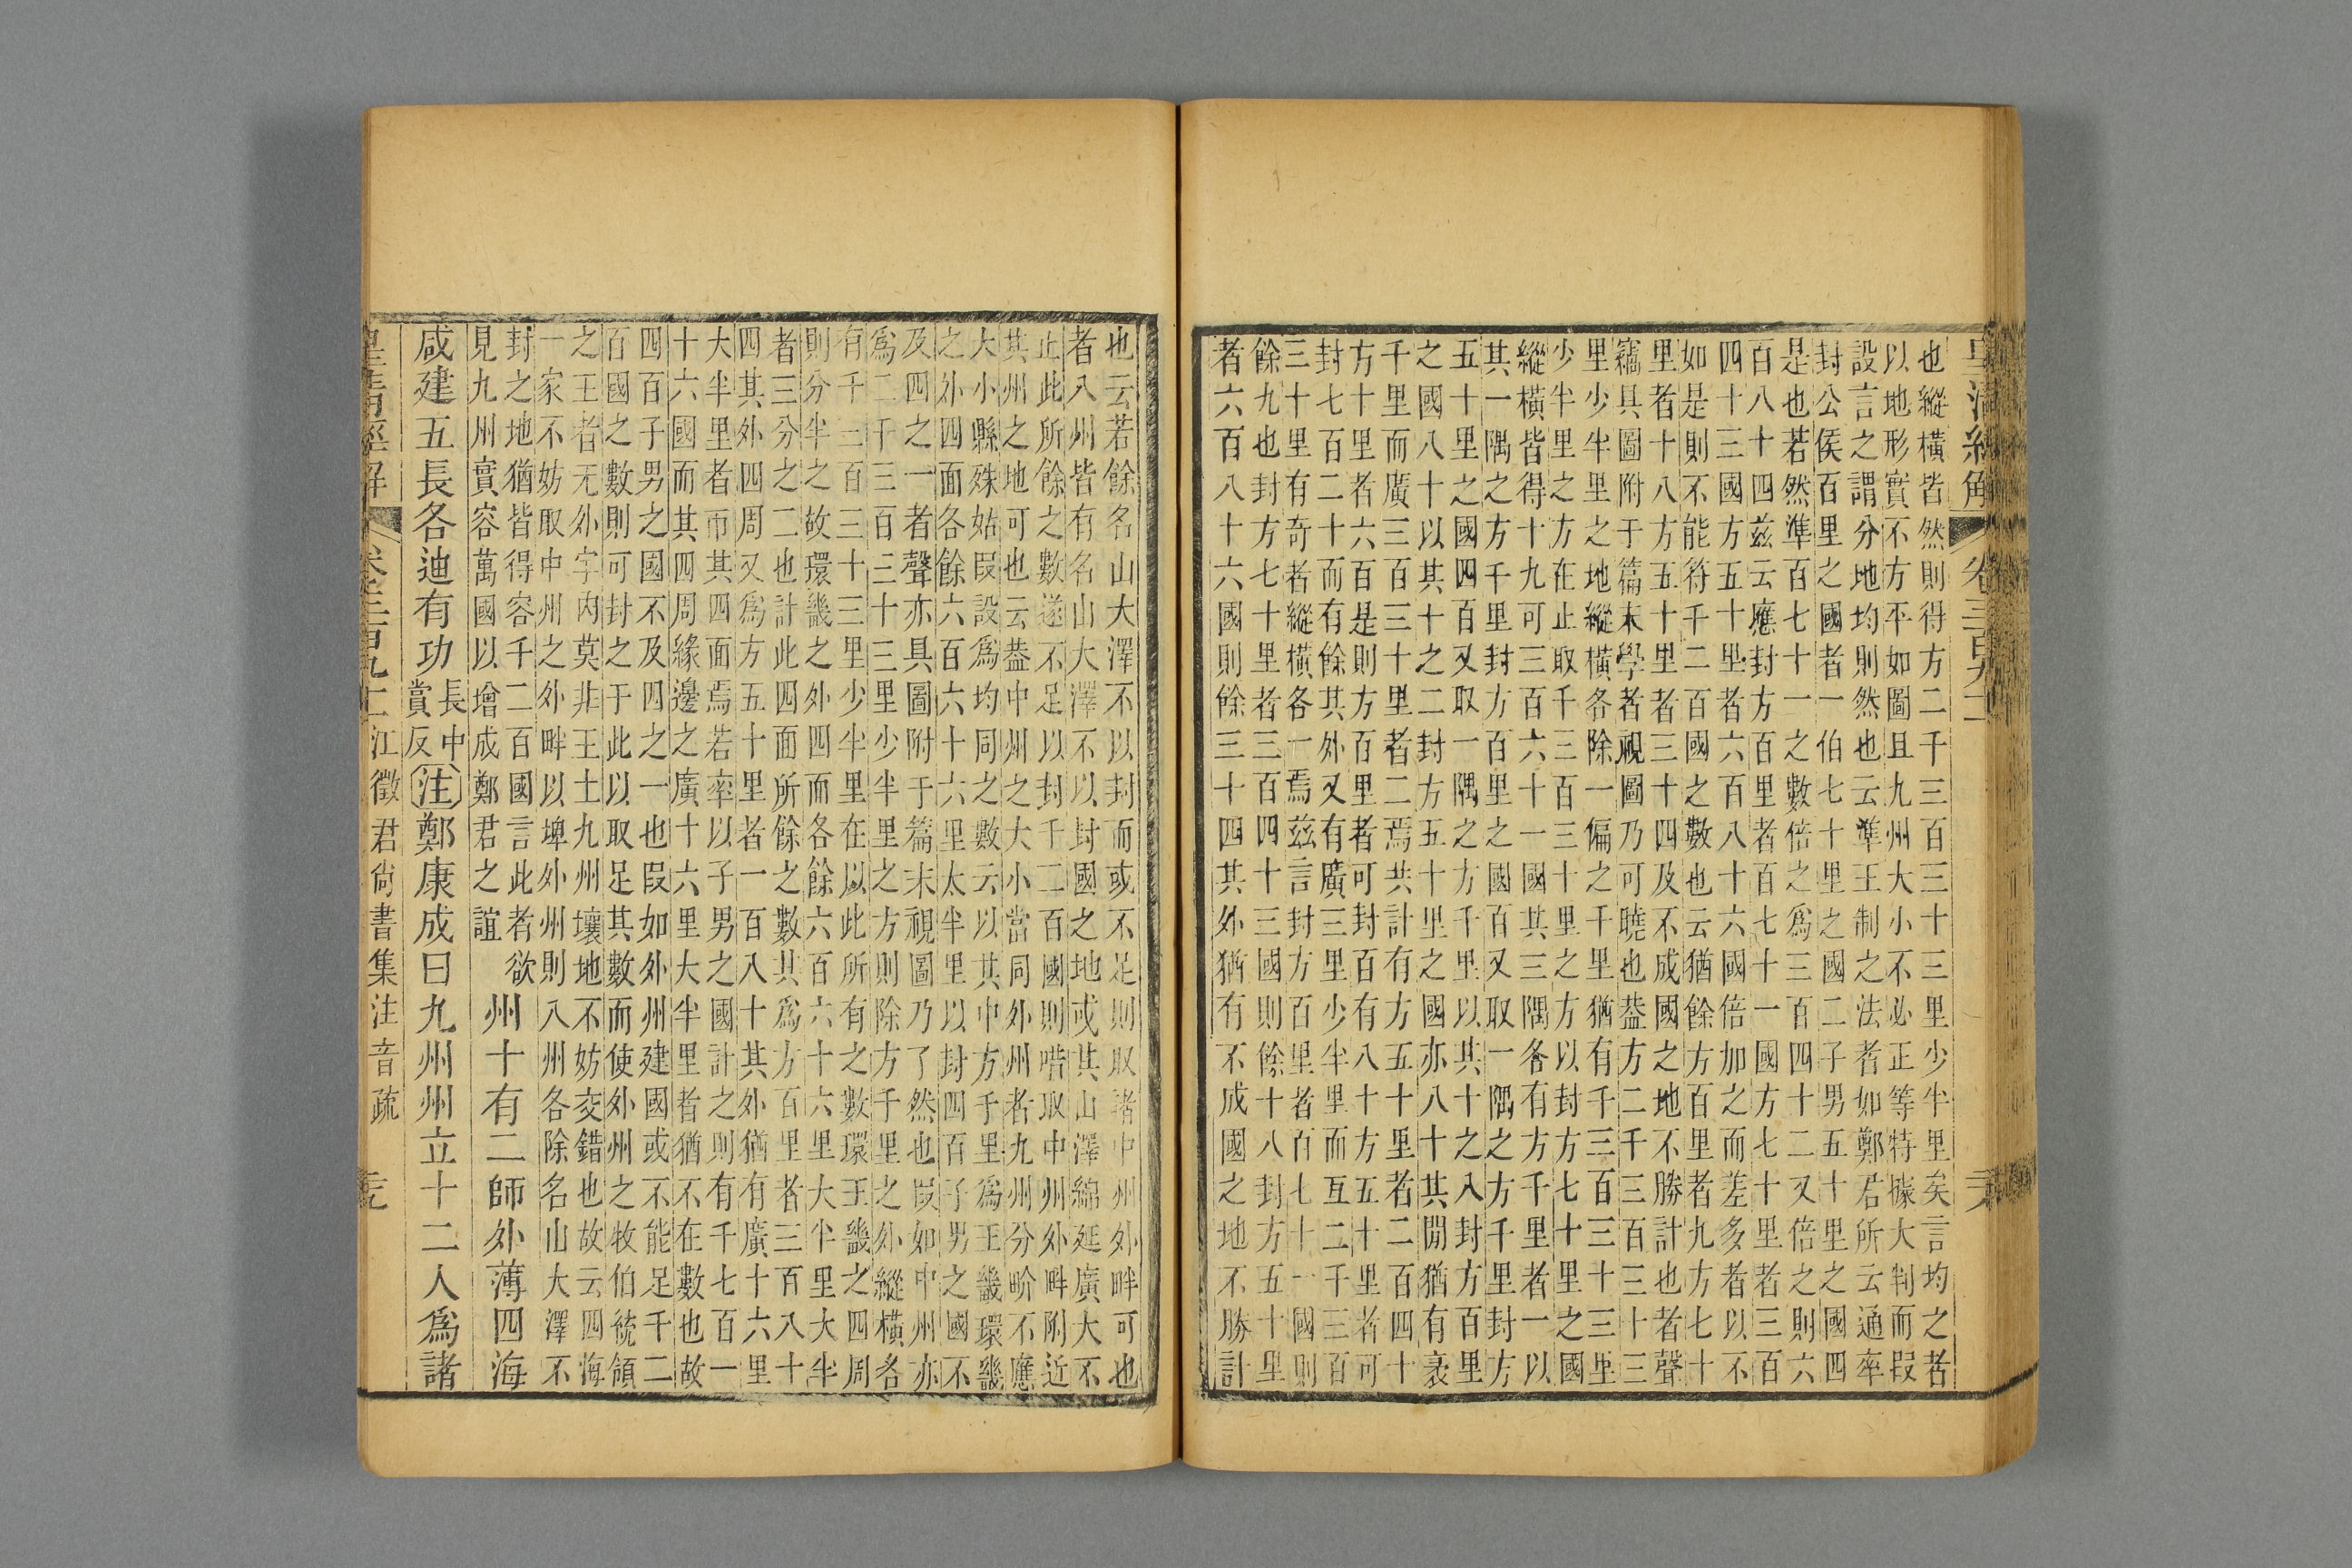 皇清經解 卷三百九十二
也縱橫皆然則得方二千三百三十三里少半里矣言均之者
以地形實不方平如圖且九州大小不必正等特據大判而叚
設言之謂分地均則然也云準王制之法者如鄭君所云通率
封公侯百里之國者一伯七十里之國二子男五十里之國四
是也若然準百七十一之數倍之爲三百四十二又倍之則六
百八十四茲云應封方百里者百七十一國方七十里者三百
四十三國方五十里者六百八十六國倍加之而差多者以不
如是則不能符千二百國之數也云猶餘方百里者九方七十
里者十八方五十里者三十四及不成國之地不勝計也者聲
竊具圖附于篇末學者視圖乃可曉也葢方二千三百三十三
里少半里之地縱橫各除一偏之千里猶有千三百三十三里
少半里之方在止取千三百三十里之方以封方七十里之國
縱橫皆得十九可三百六十一國其三隅各有方千里者一以
其一隅之方千里封方百里之國百又取一隅之方千里封方
五十里之國四百又取一隅之方千里以其十之八封方百里
之國八十以其十之二封方五十里之國亦八十其閒猶有袤
千里而廣三百三十里者二焉共計有方五十里者二百四十
方十里者六百是則方百里者可封百有八十方五十里者可
封七百二十而有餘其外又有廣三里少半里而亙二千三百
三十里有奇者縱橫各一焉茲言封方百里者百七十一國則
餘九也封方七十里者三百四十三國則餘十八封方五十里
者六百八十六國則餘三十四其外猶有不成國之地不勝計
也云若餘名山大澤不以封而或不足則取諸中州外畔可也
者八州皆有名山大澤不以封國之地或其山澤綿延廣大不
止此所餘之數遂不足以封千二百國則啎取中州外畔附近
其州之地可也云葢中州之大小當同外州者九州分畍不應
大小縣殊姑叚設爲均同之數云以其中方千里爲王畿環畿
之外四面各餘六百六十六里太半里以封四百子男之國不
及四之一者聲亦具圖附于篇末視圖乃了然也叚如中州亦
爲二千三百三十三里少半里之方則除方千里之外縱橫各
有千三百三十三里少半里在以此所有之數環王畿之四周
則分半之故環畿之外四而各餘六百六十六里大半里大半
者三分之二也計此四面所餘之數其爲方百里者三百八十
四其外四周又爲方五十里者一百八十其外猶有廣十六里
大半里者帀其四面焉若率以子男之國計之則有千七百一
十六國而其四周緣邊之廣十六里大半里者猶不在數也故
四百子男之國不及四之一也叚如外州建國或不能足千二
百國之數則可封之于此以取足其數而使外州之牧伯統領
之王者无外宇內莫非王土九州壤地不妨交錯也故云四海
一家不妨取中州之外畔以埤外州則八州各除名山大澤不
封之地猶皆得容千二百國言此者欲
見九州實容萬國以增成鄭君之誼
州十有二師外薄四海
咸建五長各迪有功長中賞反注鄭康成曰九州州立十二人爲諸
皇清經解 卷三百九十二 江徵君尚書集注音疏